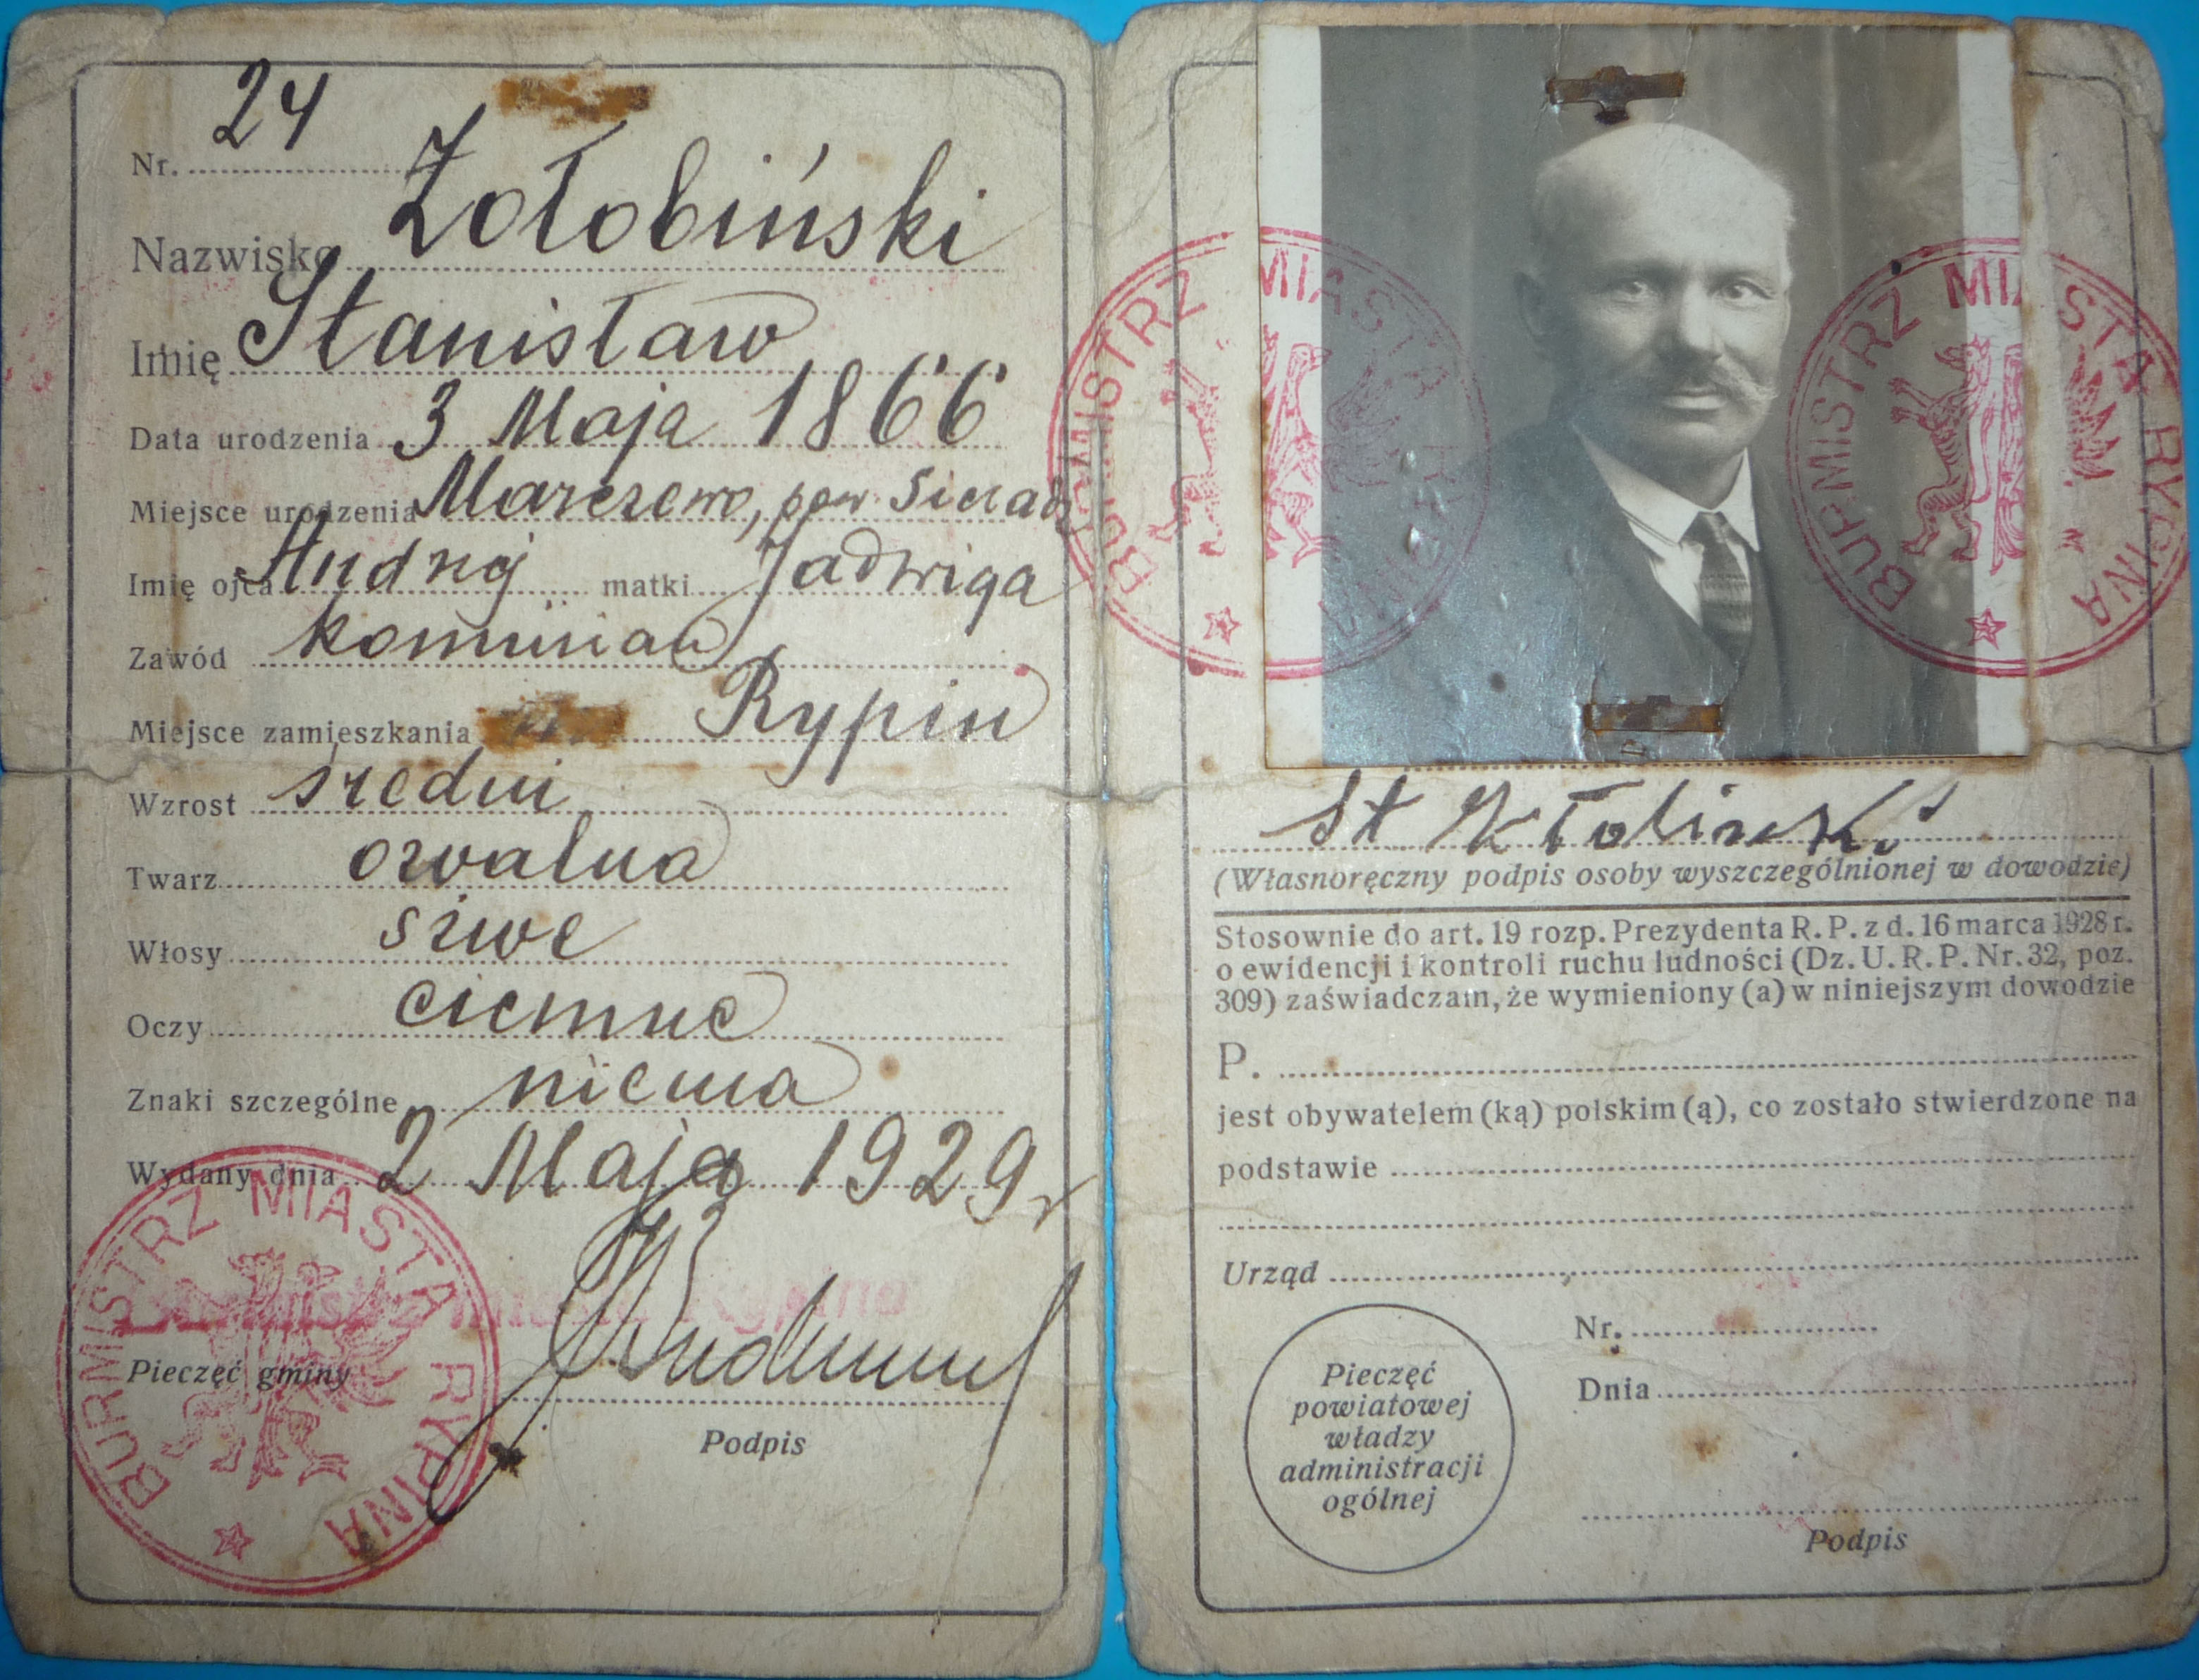 Nr. 24
Nazwisko Żołobiński
Imię Stanisław
Data urodzenia 3 Maja 1866
Miejsce urodzenia pow. Sieradz
Imię ojca Andrzej matki Jadwiga
Zawód kominiarz
Miejsce zamieszkania Rypin
Wzrost średni
Twarz owalna
Włosy siwe
Oczy ciemne
Znaki szczególne niema
Wydany dnia 2 Maja 1929 r
Burmistrz miasta Rypina
BURMISTRZ MIASTA RYPINA
Pieczęć gminy
Podpis
BURMISTRZ MIASTA RYPINA
BURMISTRZ MIASTA RYPINA
St
(Własnoręczny podpis osoby wyszczególnionej w dowodzie)
Stosownie do art. 19 rozp. Prezydenta R. P. z d. 16 marca 1928 r.
o ewidencji i kontroli ruchu ludności (Dz. U. R. P. Nr. 32, poz.
309) zaświadczam, że wymieniony (a) w niniejszym dowodzie
P.
jest obywatelem (ką) polskim (ą), co zostało stwierdzone na
podstawie
Urząd
Nr.
Dnia
Pieczęć
powiatowej
władzy
administracji
ogólnej
Podpis